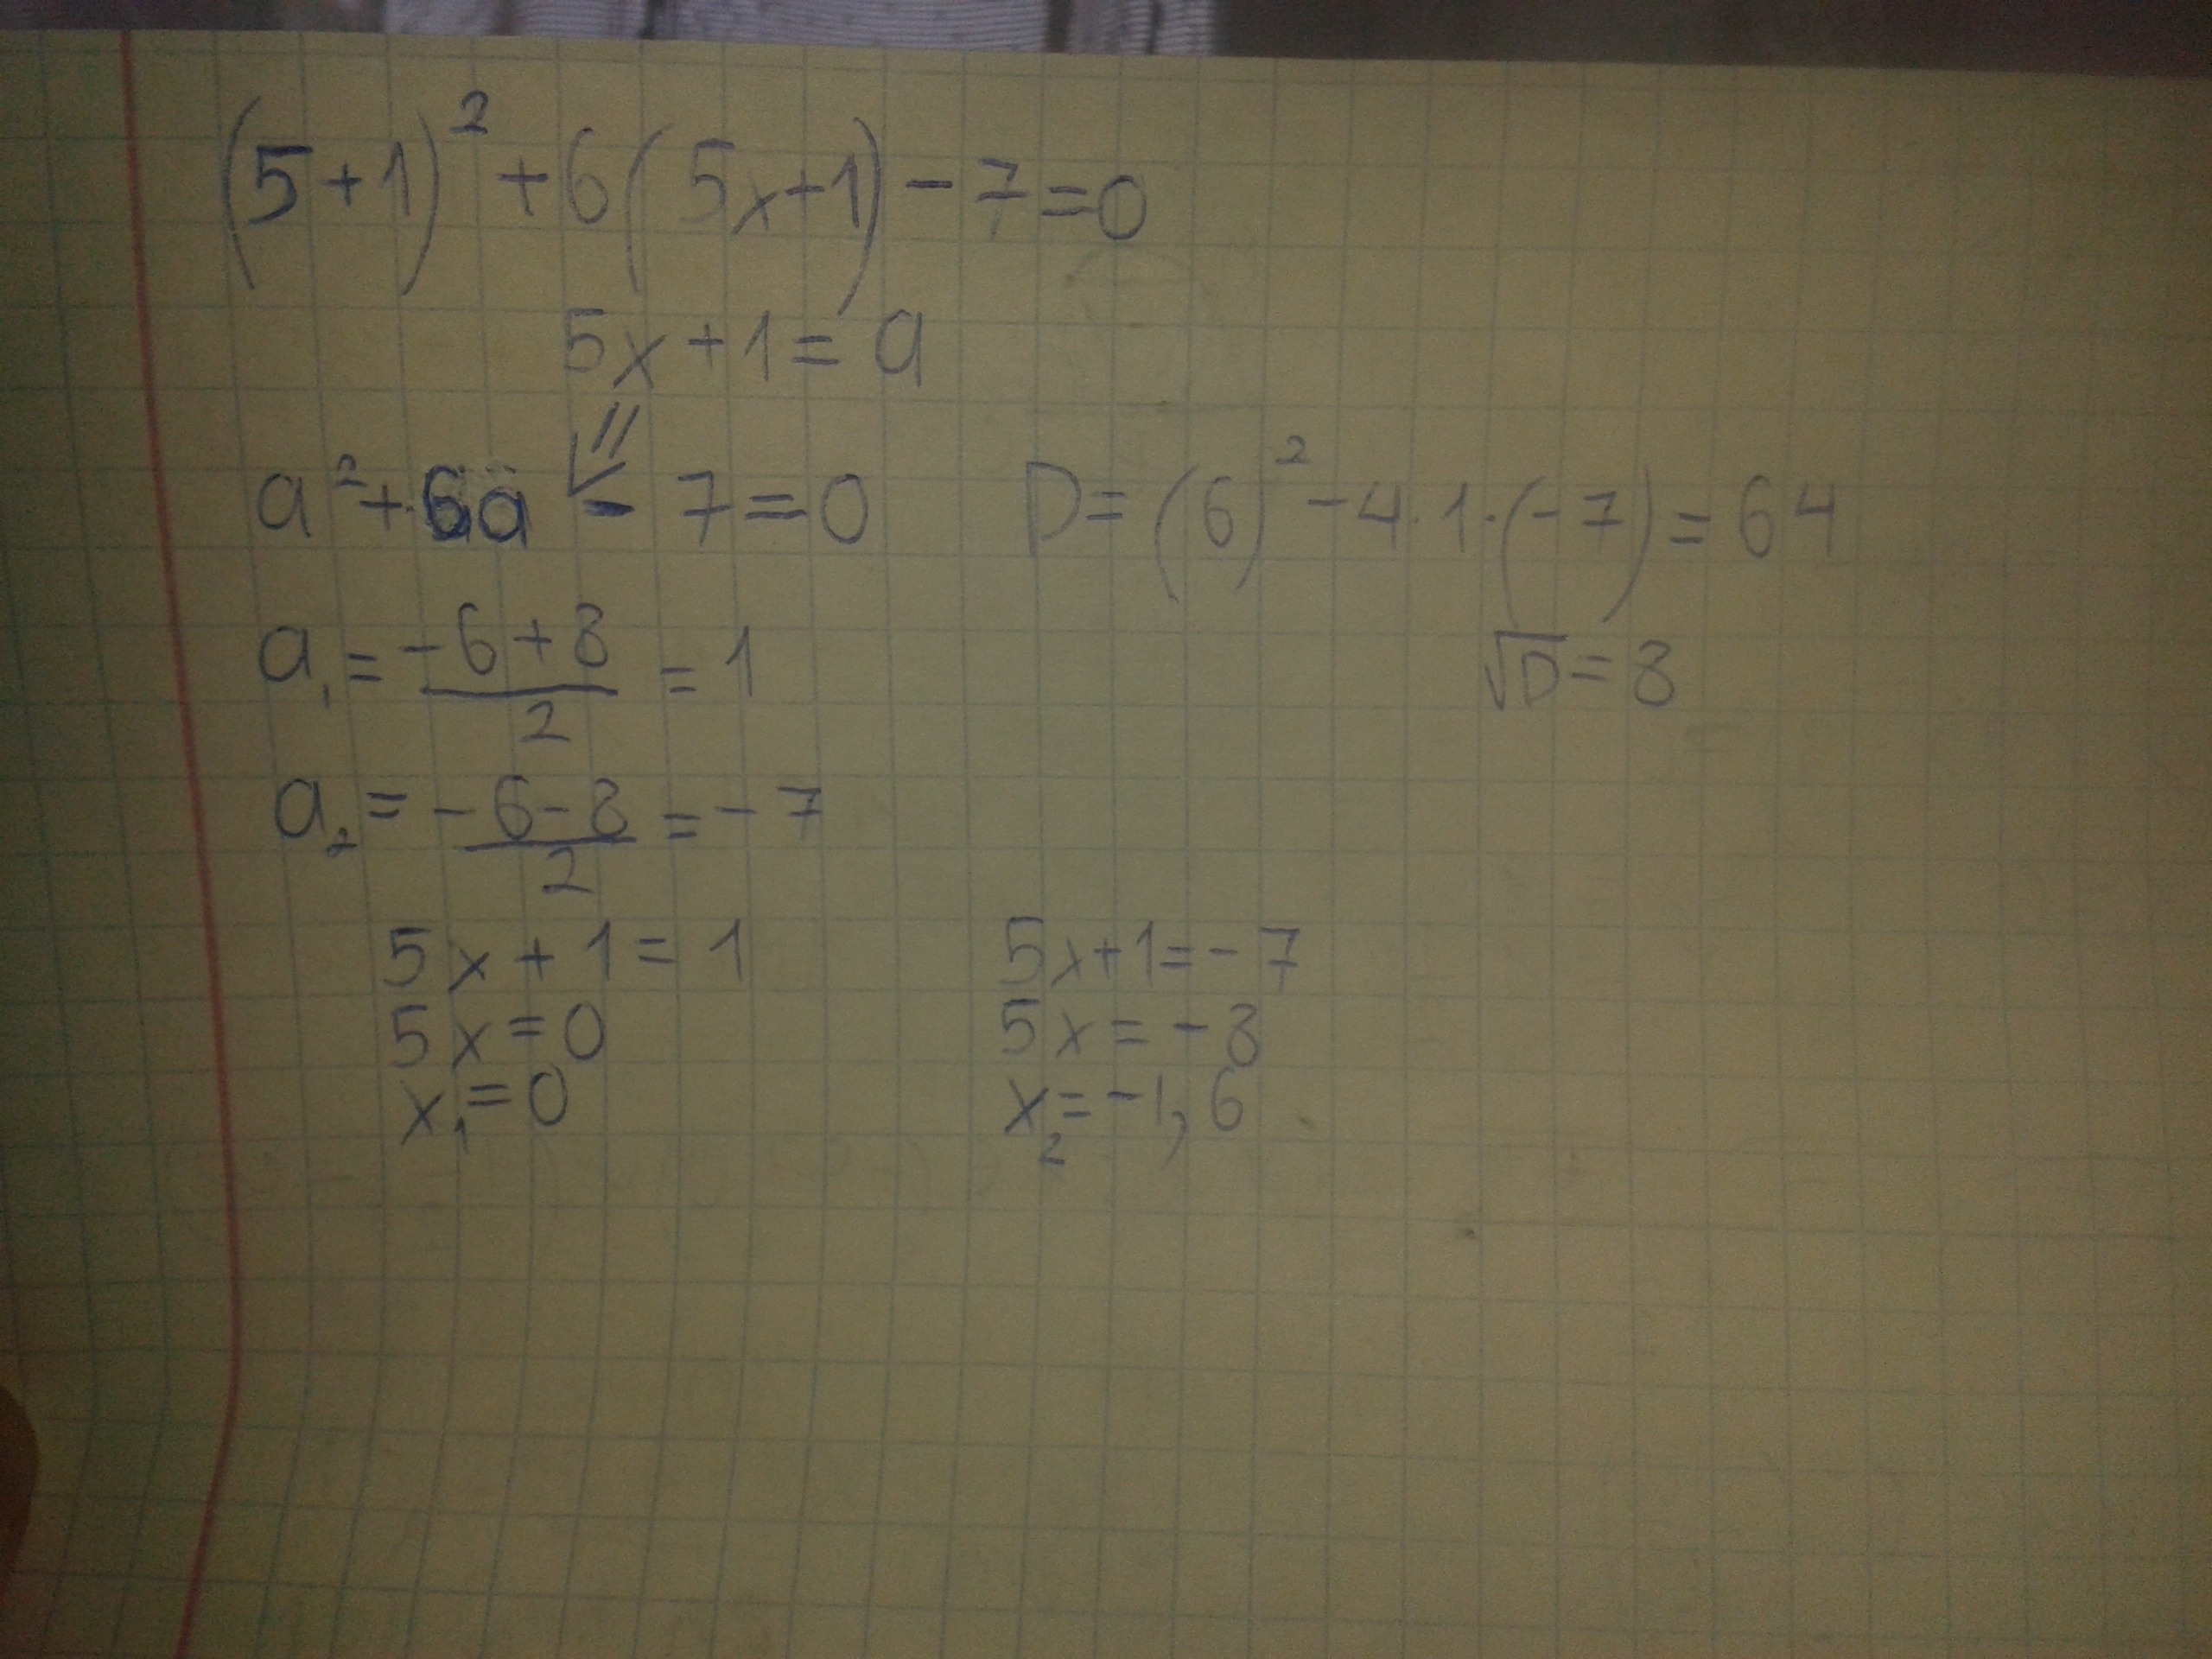 (5+1)² + 6(5x+1) - 7 = 0
5x + 1 = a
a² + 6a - 7 = 0
D = (6)² - 4·1·(-7) = 64
√D = 8
a₁ = (-6+8)/2 = 1
a₂ = (-6-8)/2 = -7
5x + 1 = 1
5x = 0
x₁ = 0
5x+1 = -7
5x = -8
x₂ = -1,6